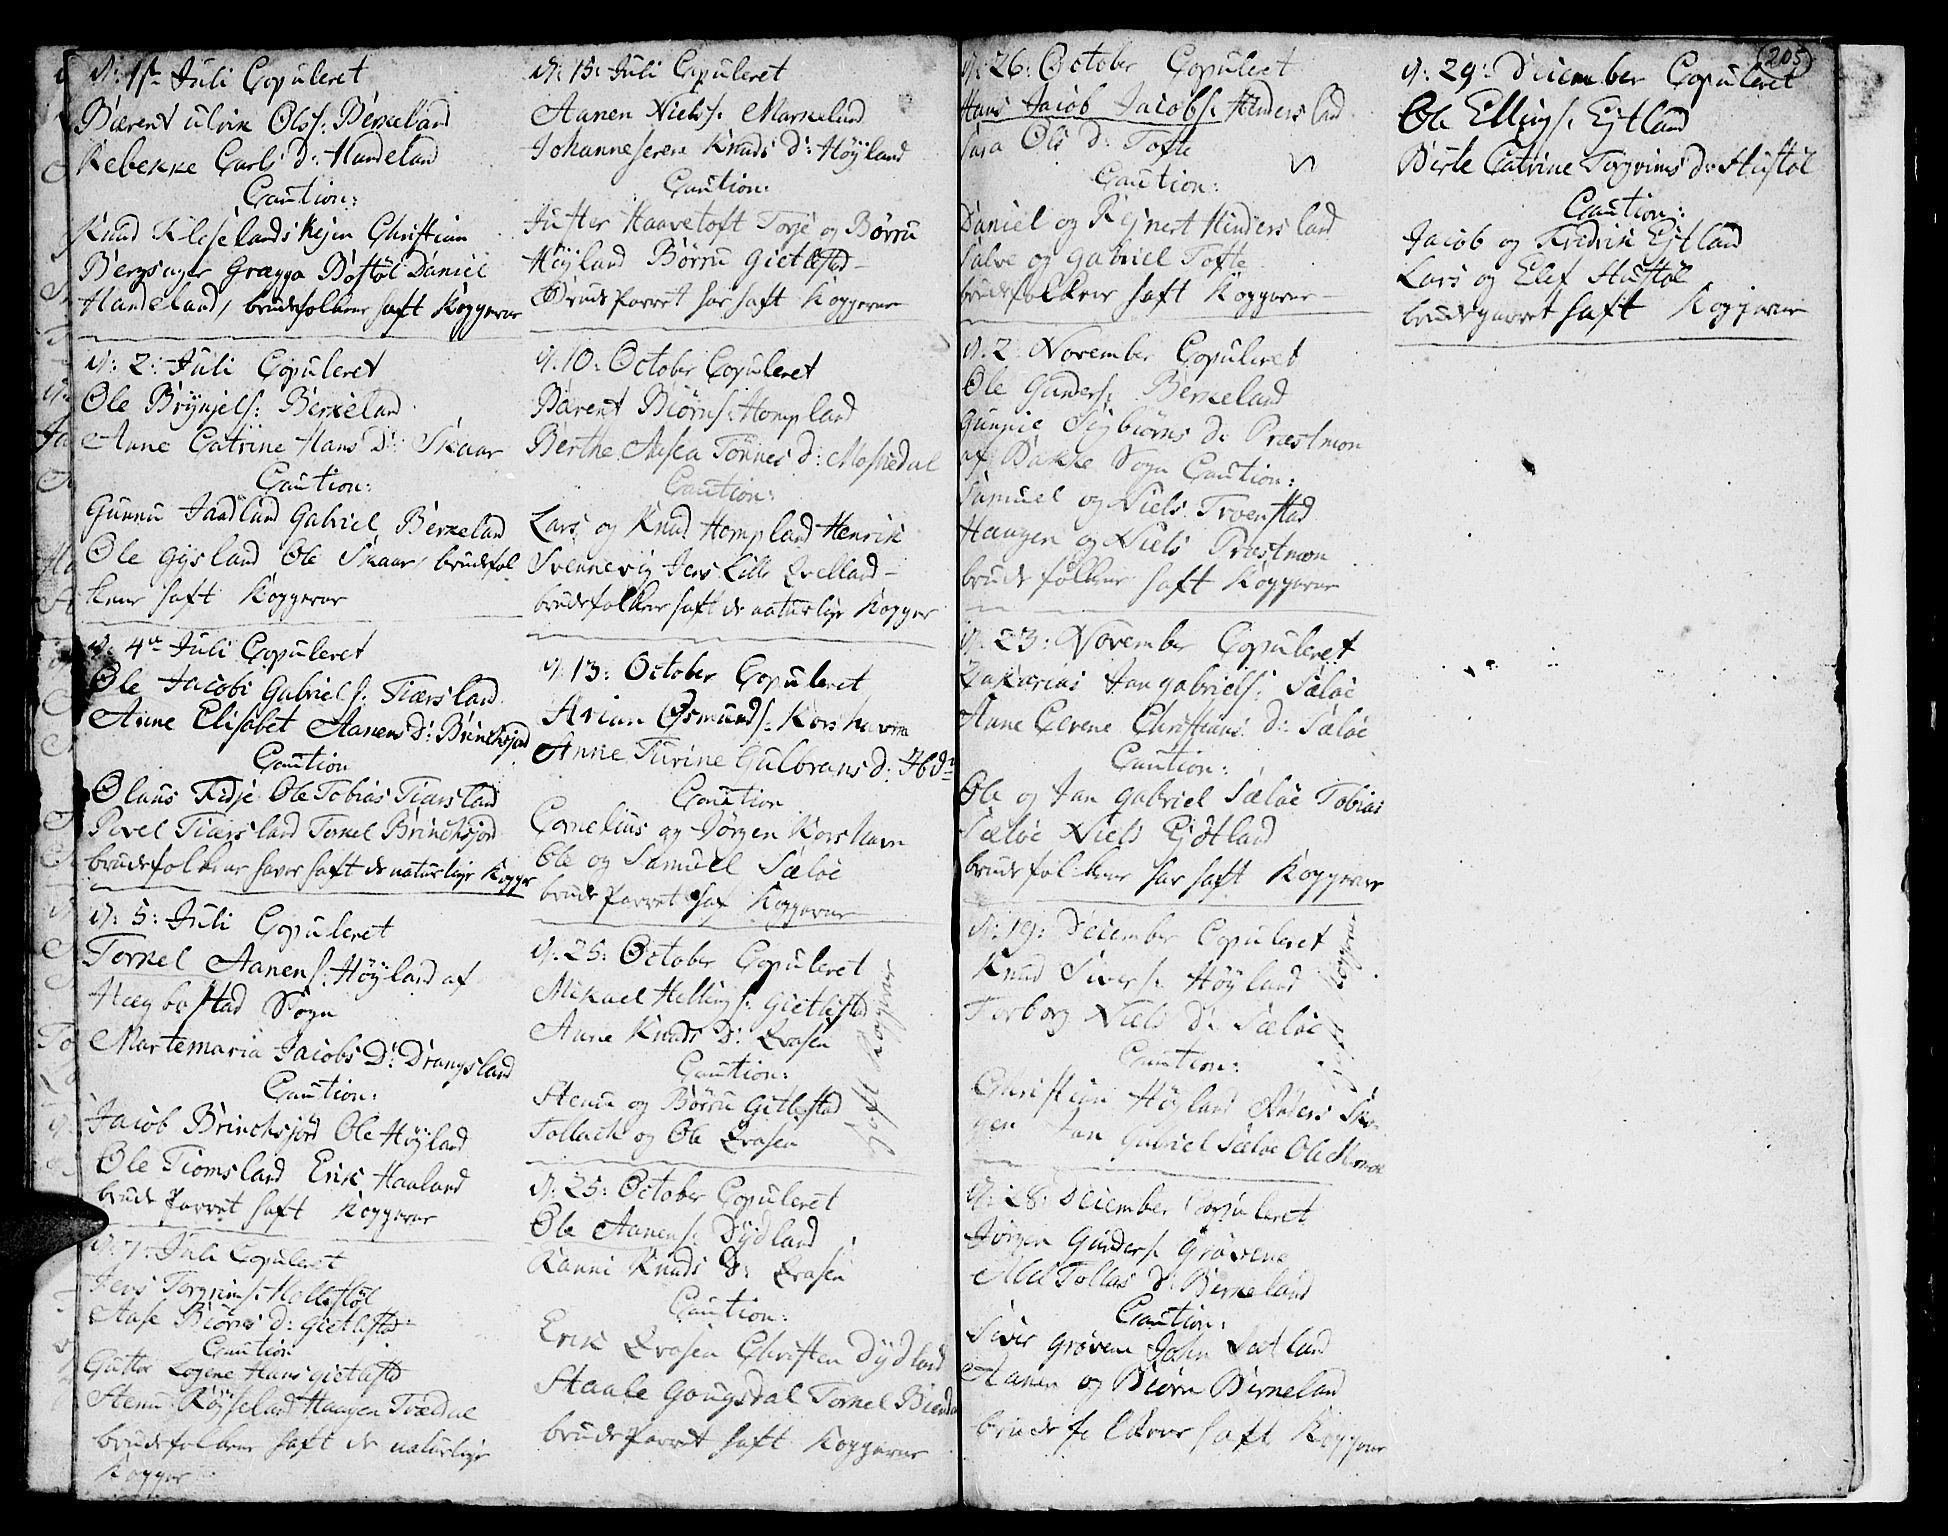 d: 1st Juli Copuleret
Bærent Ulvik Ols s: Berkeland
Rebekke Carls d: Handeland
Caution:
Knud Kleselands Christian
Bergsager Grægga Bostøl Daniel
Handeland, brudefolkene haft Koppever
d: 2: Juli Copuleret
Ole Brynjels: Berkeland
Anne Catrine Hans D: Skaar
Caution:
Gunnu Jaadland Gabriel Berkeland
Ole Gysland Ole Skaar, brudefol
kene haft Koppever
d: 4de Juli Copuleret
Ole Jacobs Gabriels: Tiærsland
Anne Elisabet Aanens D: Brinchsjord
Caution
Olaus Fidje Ole Tobias Tiærsland
Povel Tiærsland Torkel Brinchsjord
brudefolkene haver haft de naturlige Kopper
d: 5: Juli Copuleret
Torkel Aanens: Høyland af
Hægbostad Sogn
Martemaria Jacobs D: Drangsland
Caution:
Jacob Brinchsjord Ole Høyland
Ole Tiomsland Erik Haaland
brude Parret haft Koppever
d: 7: Juli Copuleret
Jens Torgrims: Mollestøl
Aase Biørns D: Gietlestad
Caution
Guttor Løgene Hans Gietlestad
Stenu Røyseland Haagen Trædal
brudefolkene haft de naturlige
Kopper
d: 15: Juli Copuleret
Aanen Niels s: Markelund
Johanneserene Knuds D: Høyland
Caution:
Juster Haavetoft Torje og Børru
Høyland Børru Gietlestad
Brude Parret har haft Koppever
d. 10: October Copuleret
Bærent Biørns: Hompland
Berthe Aasea Tønnes d: Moskedal
Caution:
Lars og Knud Hompland Henrik
Svennevig Jens Lille Qvelland
brudefolkene haft de naturlige Kopper
d. 13: October Copuleret
Arian Osmunds: Korshavn
Anne Turine Gulbrans d: Ibdm
Caution
Cornelius og Jørgen Korshavn
Ole og Samuel Sæløe
brude Parret haf Koppever
d: 25: October Copuleret
Mikael Hellings: Gietlestad
Anne Knuds D: Qvasen
Caution:
Stenu og Børru Gitlestad
Tollach og Ole Qvasen
haft Koppever
d: 25: October Copuleret
Ole Aanens: Dydland
Ranni Knuds D: Qvasen
Caution:
Erik Qvasen Christen Dydland
Staale Gougsdal Torkel
brude Parret haft Koppever
d: 26: October Copuleret
Hans Jacob Jacobs: Hindersland
Sara Ols D: Tofte
Caution:
Daniel og Reynert Hindersland
Salve og Gabriel Tofte
brudefolkene haft Koppever
d: 2: November Copuleret
Ole Gunders: Berkeland
Gunnie Sigbiørns D: Præstmon
af Bakke Sogn Caution:
Samuel og Niels Troenstad
Haagen og Niels Præstmon
brude folkene haft Koppever
d: 23: November Copuleret
Zakarias Jan Gabriels: Sæløe
Anne Elvene Christians D: Sæløe
Caution:
Ole og Jan Gabriel Sæløe Tobias
Sæløe Niels Ejdtland
brudefolkene har haft Koppever
d: 19: December Copuleret
Knud Sivers: Høyland
Torborg Niels D: Sæløe
haft Koppever
Caution:
Christian Høyland Anders Ska-
gen Jan Gabriel Sæløe Ole
d: 28: December Copuleret
Jørgen Gunders: Grøvene
Abel Tollas D: Berkeland
Caution:
Siver Grøvene John Sætland
Aanen og Biørn Berkeland
brude folkene haft Koppever
205
d: 29: December Copuleret
Ole Ellings: Ejtland
Birte Catrine Torgrims d: Hustøl
Caution:
Jacob og Fredrik Ejtland
Lars og Elef Hustøl
brudeparret haft Koppever